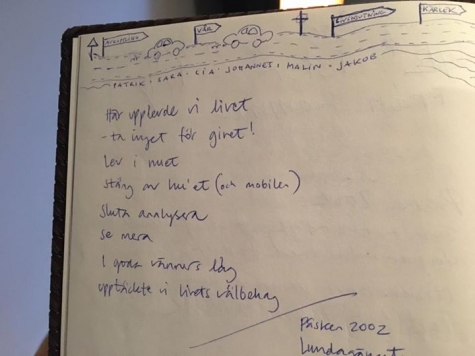 AVKOPPLING VÅR LIVSNJUTNING KÄRLEK
PATRIK · SARA · LIA · JOHANNES · MALIN · JAKOB
Här upplevde vi livet
- ta inget för givet!
Lev i nuet
stäng av hu'et (och mobilen)
Sluta analysera
se mera
I goda vänners lag
upptäckte vi livets välbehag
Påsken 2002